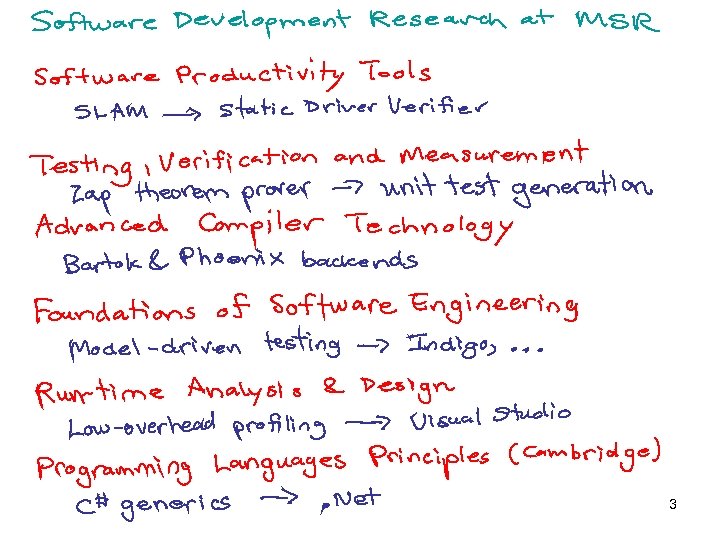 Software Development Research at MSR
Software Productivity Tools
SLAM → Static Driver Verifier
Testing, Verification and Measurement
Zap theorem prover → unit test generation
Advanced Compiler Technology
Bartok & Phoenix backends
Foundations of Software Engineering
Model-driven testing → Indigo, ...
Run-time Analysis & Design
Low-overhead profiling → Visual Studio
Programming Languages Principles (Cambridge)
C# generics → .Net
3